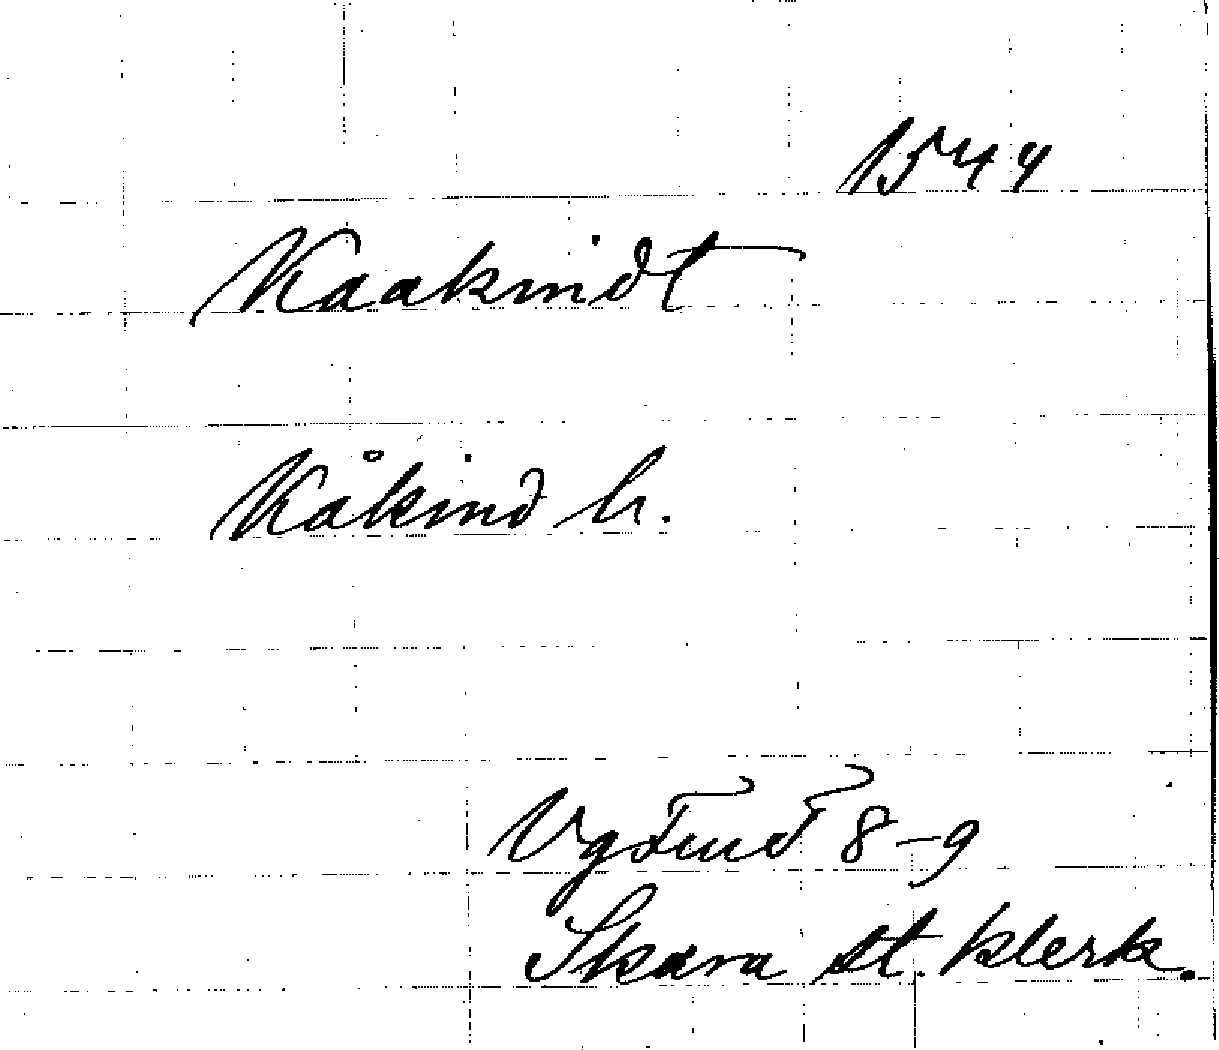 1544
Kaakindt
Kåkind h.
8-9
Skara st. klerk.